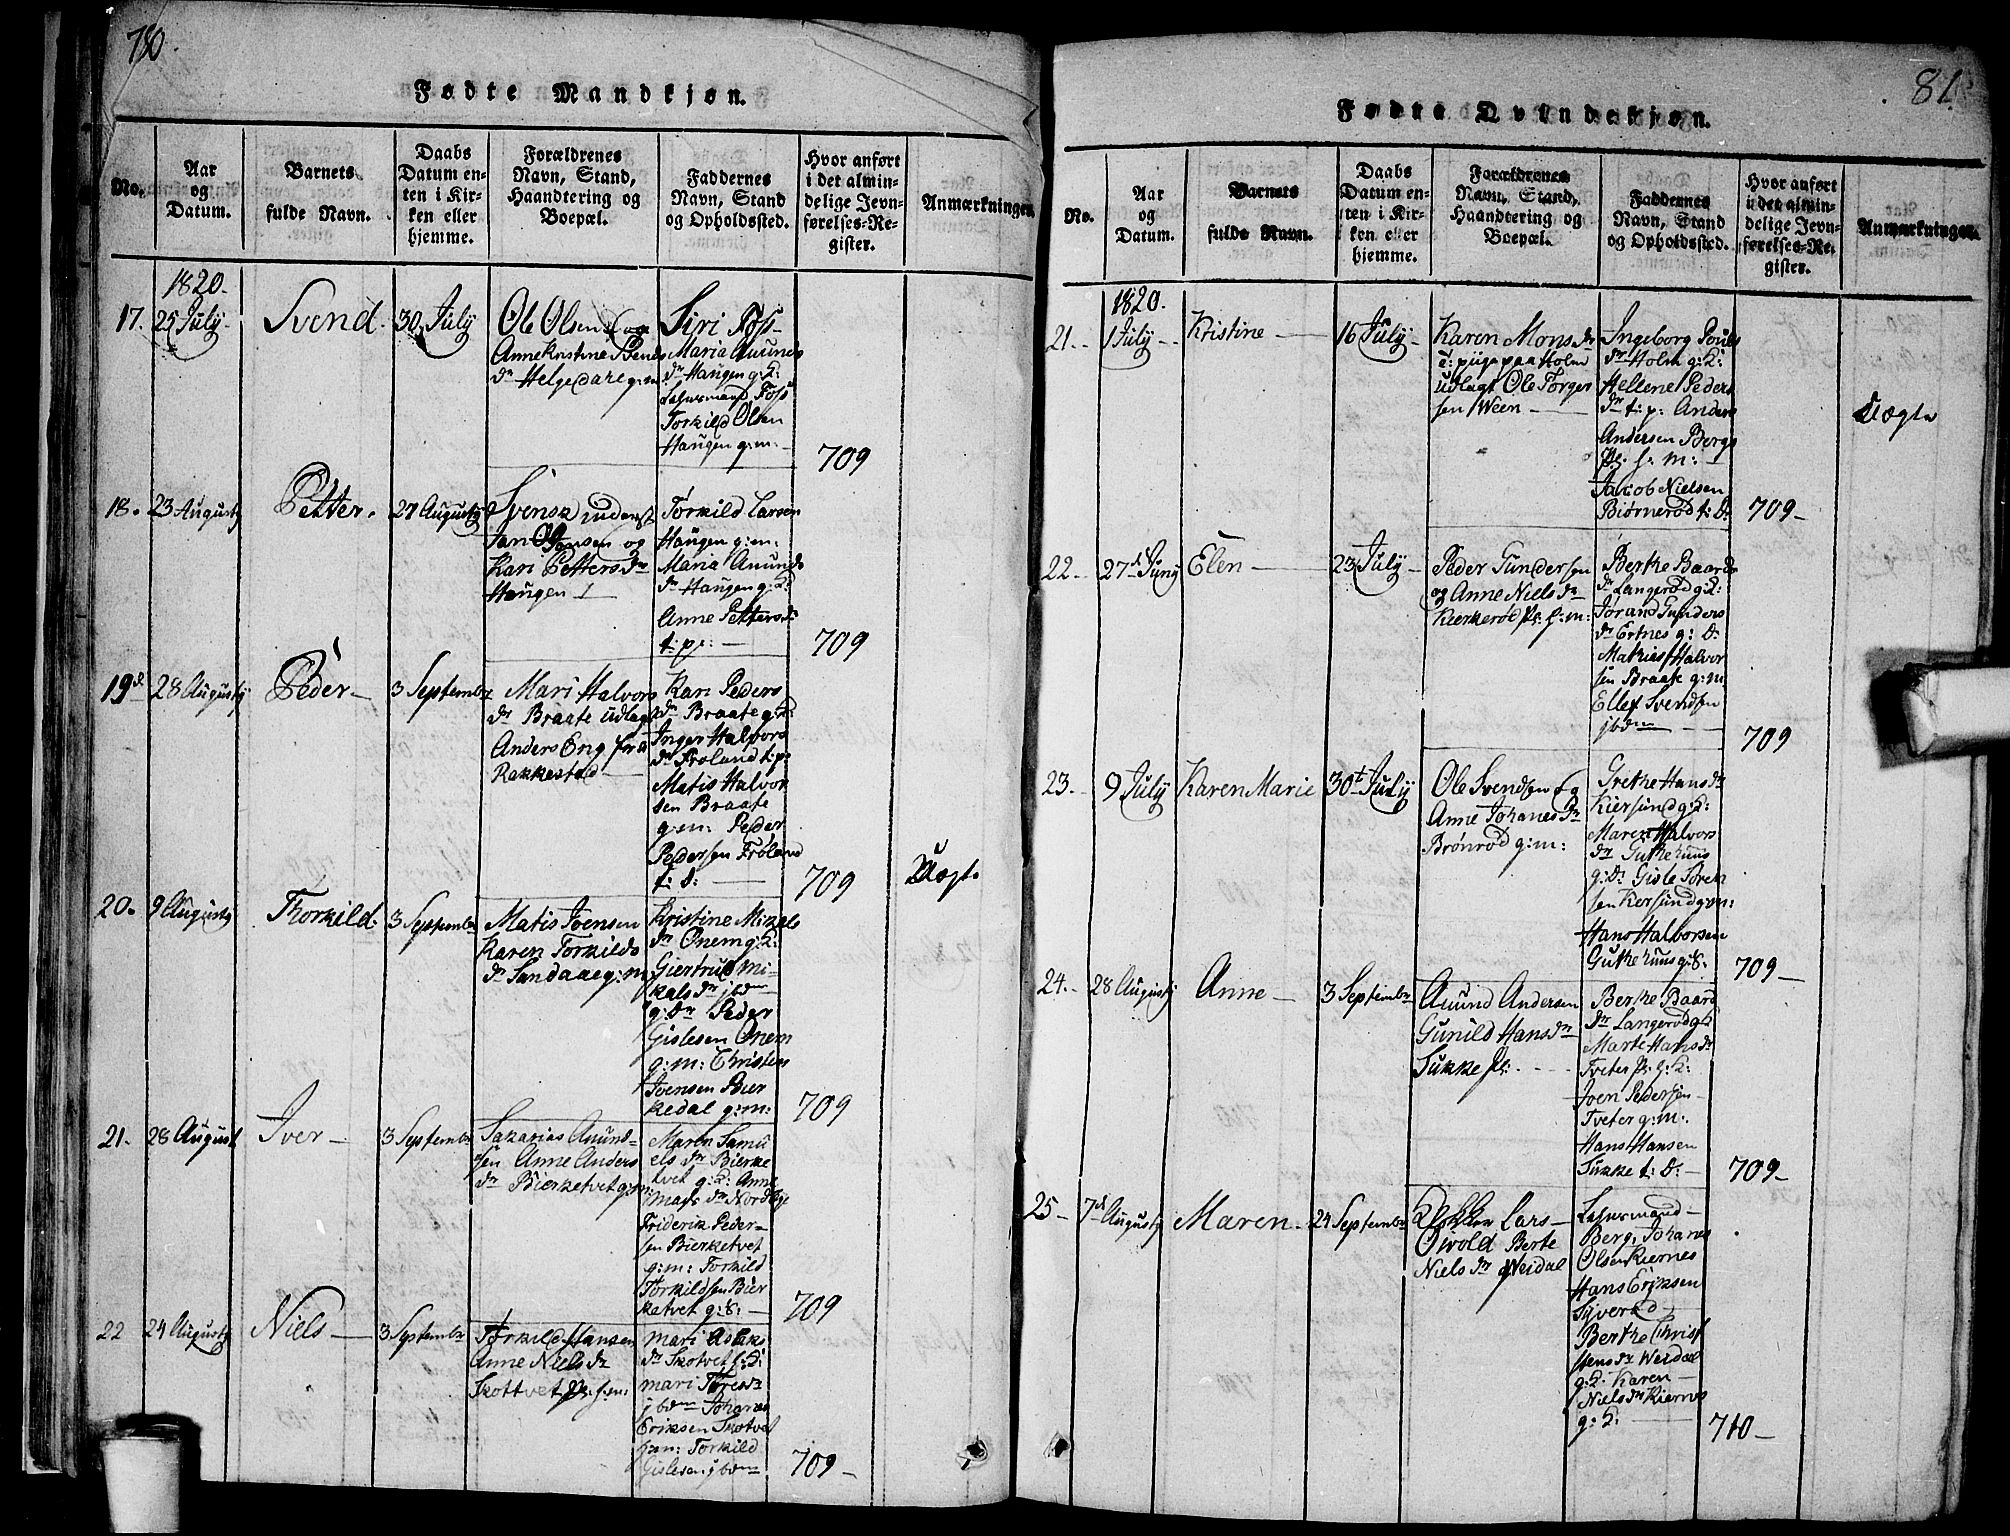 780.
Fødte Mandkjøn.
No.
Aar
og
Datum.
Barnets
fulde Navn.
Daabs
Datum en-
ten i Kir-
ken eller
hjemme.
Forældrenes
Navn, Stand,
Haandtering og
Boepæl.
Faddernes
Navn, Stand
og Opholdssted.
Hvor anført
i det almin-
delige Jevn-
førelses-Re-
gister.
Anmærkninger.
1820.
17. 25 July
Svend.
30 July
Ole Olsen og
Anne Kristine Bents
dr Helgedare g:m
Siri Foss
Maria Amunds
dr Haugen g:K:
Lehnsmand Foss
Torkild Olsen
Haugen g:m:
709
18. 23 Augusty
Petter.
27 Augusty
Svensk inderst
Jan Jansen og
Kari Petters dr
Haugen
Torkild Larsen
Haugen g:m:
Maria Amunds
dr Haugen g:K:
Anne Petters dr
t:p:
709
19d 28 Augusty
Peder
3 Septembr
Mari Halvors
dr Braate udlagt
Anders Eng fra
Rakkestad
Kari Peders
dr Braate g:K:
Inger Halvors
dr Froland t:p:
Matis Halvor
sen Braate
g:m: Peder
Pedersen Frøland
t: d:
709
Uægte
20. 9 Augusty
Thorkild.
3 Septembr
Matis Ivensen
Karen Torkilds
dr Sandaae g:m
Kristine Mikels
dr Onem g:K:
Giertrud Mi-
kals dr ibdm
g: dr Peder
Gislesen Onem
g:m: Christen
Ivensen Bier
kedal g:m:
709
21. 28 August
Iver
3 Septembr
Sakarias Amund-
sen Anne Anders
dr Bierketvet g:m:
Maren Samu
els dr Bierke
tvet g:K: Anne
Mays dr Nordbye
Friderik Peder-
sen Bierketvet
g:m: Torkild
Torkildsen Bier
ketvet g:k:
709
22 24 Augusty
Niels
3 Septembr
Torkild Hansen
Anne Niels dr
Skottvet Pl. f:m:
Mari Aslaks
dr Skotvet f:K:
Mari Tores dr
ibdm Johanes
Eriksen Skotvet
Torkild
Gislesen ibdm
709
81.
Fødte Qvindekjøn.
No.
Aar
og
Datum.
Barnets
fulde Navn.
Daabs
Datum en-
ten i Kir-
ken eller
hjemme.
Forældrenes
Navn, Stand,
Haandtering og
Boepæl.
Faddernes
Navn, Stand
og Opholdssted.
Hvor anført
i det almin-
delige Jevn-
førelses-Re-
gister.
Anmærkninger.
1820.
21. 1 July
Kristine
16 July
Karen Mons dr
t: pige paa Holm
udlagt Ole Torger
sen Ween
Ingeborg Pouls
dr Holm g:K:
Hellene Peders
dr t:p: Anders
Andersen Bergs
Pl. f: m:
Jacob Nielsen
Biørnerød t: d:
709
Uægte
22. 27d Juny
Elen
23 July
Peder Gundersen
og Anne Niels dr
Kierkerød Pl. f:m:
Berthe Baards
dr Langerød g:K:
Jørand Gunders
dr Ertnes g: d:
Mathias Halvor
sen Braate g:m
Ellef Svendsen
ibdm
709
23. 9 July
Karen Marie
30t July
Ole Svendsen og
Anne Johanes dr
Brønrød g:m:
Grethe Hans dr
Kiersund g:K:
Maren Halvors
dr Guthehuus
g: d: Gisle Søren
sen Kersund g:m:
Hans Halvorsen
Guthehuus g:k:
709
24. 28 Augusty
Anne
3 Septembr
Amund Andersen
Gunild Hans dr
Sukke Pl:
Berthe Baard
dr Langerød g:K
Marte Hans dr
Tveter Pl. f:K:
Joen Pedersen
Tveter g:m:
Hans Hansen
Sukke t: d:
709
25 7d Augusty
Maren
24 Septembr
Klokker Lars
Owold Berte
Niels dr Weidal
Lehnsmand
Berg, Johanes
Olsen Kiernes
Hans Eriksen
Syverød
Berthe Christ
stens dr Weidal
g:K. Karen
Niels dr Kiernes
g:K:
710